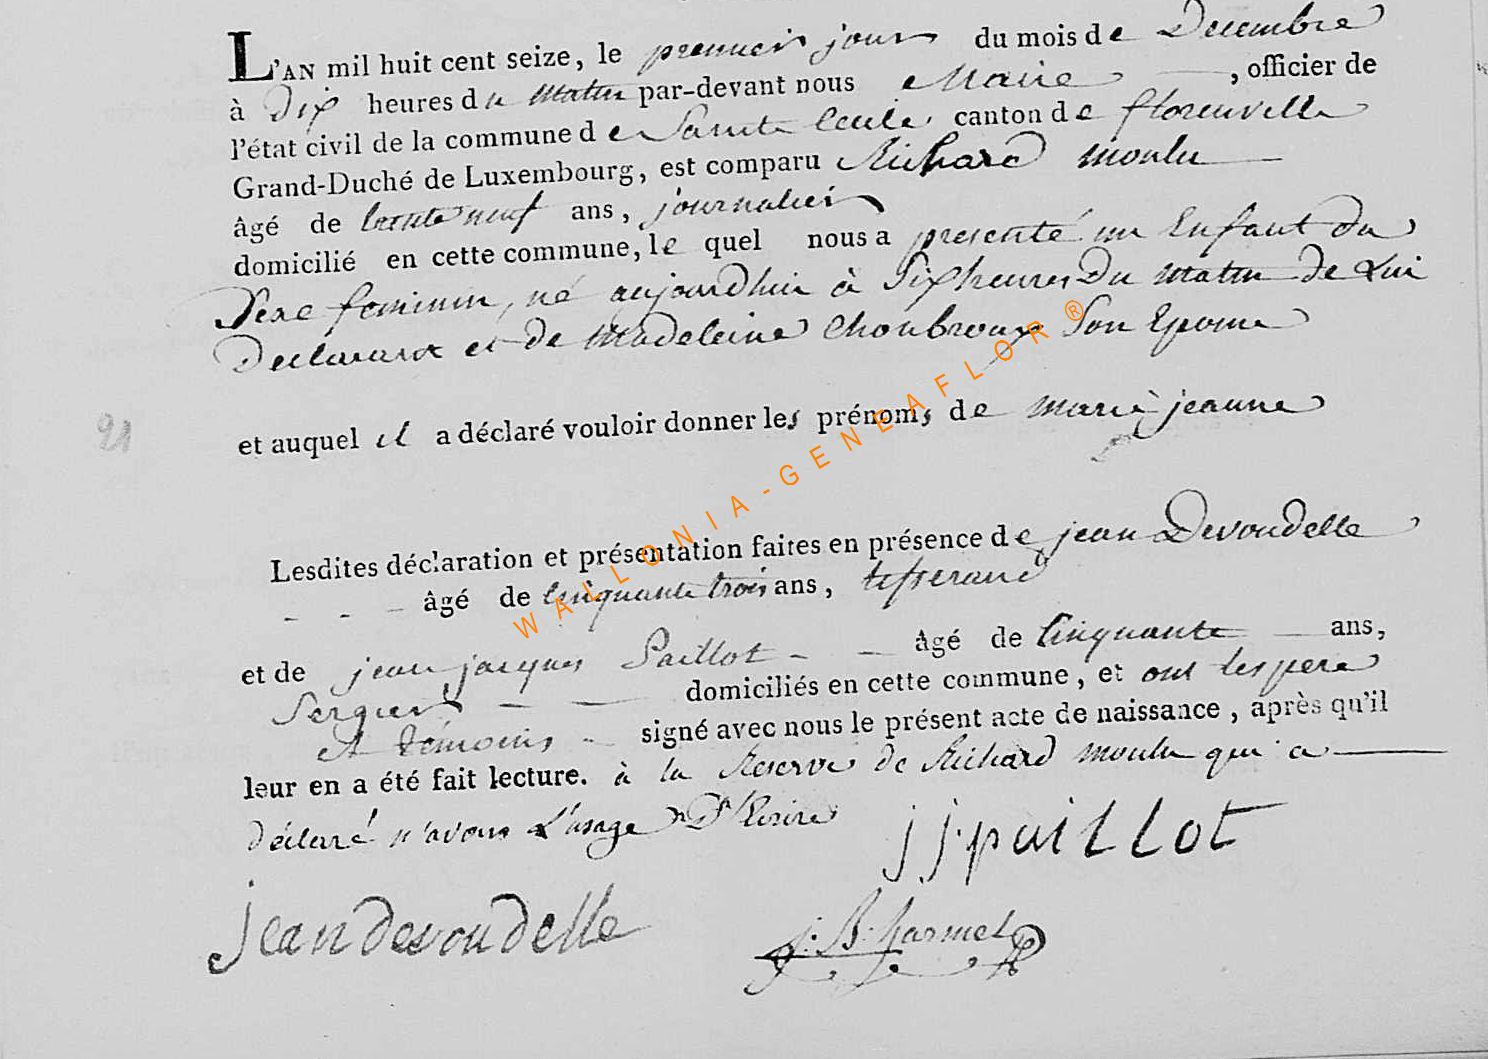 L'AN mil huit cent seize, le premier jour du mois de Decembre
à Dix heures du Matin par-devant nous Maire , officier de
l'état civil de la commune de Sainte Cecile canton de florenville
Grand-Duché de Luxembourg, est comparu Richard moulu
âgé de trente neuf ans, journalier
domicilié en cette commune, le quel nous a presenté un Enfant du
Sexe feminin, né aujourdhui à Six heures Du Matin de Lui
Declarant et de Madeleine Chonbroux Son Epouse
21
et auquel il a déclaré vouloir donner les prénoms de marie jeanne
Lesdites déclaration et présentation faites en présence de jean Devoudelle
- - - âgé de Cinquante trois ans, tisserand
et de jean jacques Paillot - - âgé de Cinquante ans,
Sergier - - domiciliés en cette commune, et ont les pere
et témoins - signé avec nous le présent acte de naissance, après qu'il
leur en a été fait lecture. à la Reserve de Richard moulu qui a
déclaré n'avoir L'usage D'Ecrire
jjpaillot
jean devoudelle
J. B. harmel
WALLONIA-GENEAFLOR ®